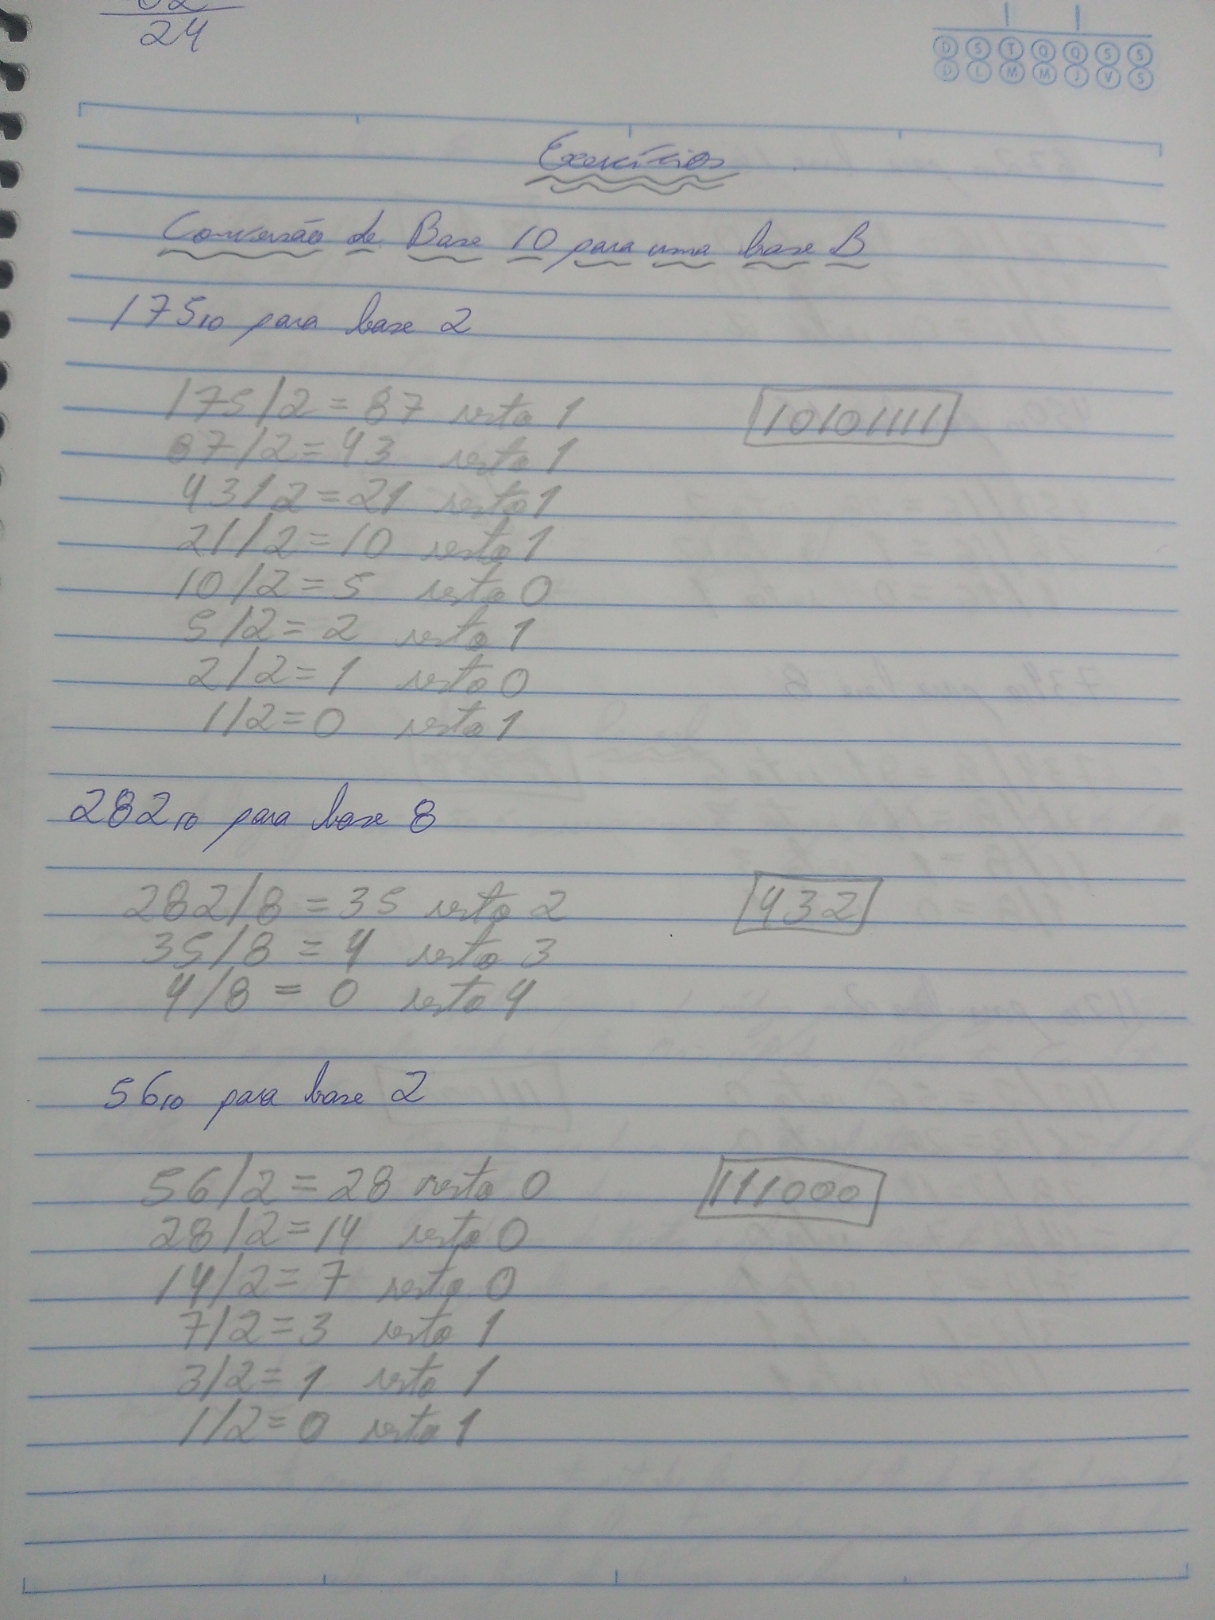 24
D S T Q Q S S
D L M M J V S
Exercícios
Conversão de Base 10 para uma base B
175₁₀ para base 2
175/2 = 87 resto 1
10101111
87/2 = 43 resto 1
43/2 = 21 resto 1
21/2 = 10 resto 1
10/2 = 5 resto 0
5/2 = 2 resto 1
2/2 = 1 resto 0
1/2 = 0 resto 1
282₁₀ para base 8
282/8 = 35 resto 2
432
35/8 = 4 resto 3
4/8 = 0 resto 4
56₁₀ para base 2
56/2 = 28 resto 0
111000
28/2 = 14 resto 0
14/2 = 7 resto 0
7/2 = 3 resto 1
3/2 = 1 resto 1
1/2 = 0 resto 1